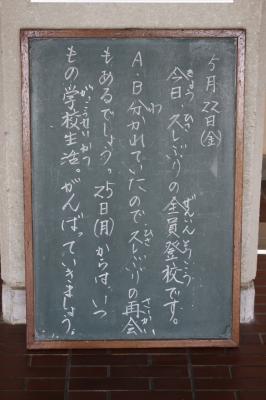 5月22日(金)
今日、久しぶりの全員登校です。
A・B分かれていたので久しぶりの再会
もあるでしょう。25日(月)からは、いつ
もの学校生活。がんばっていきましょう。